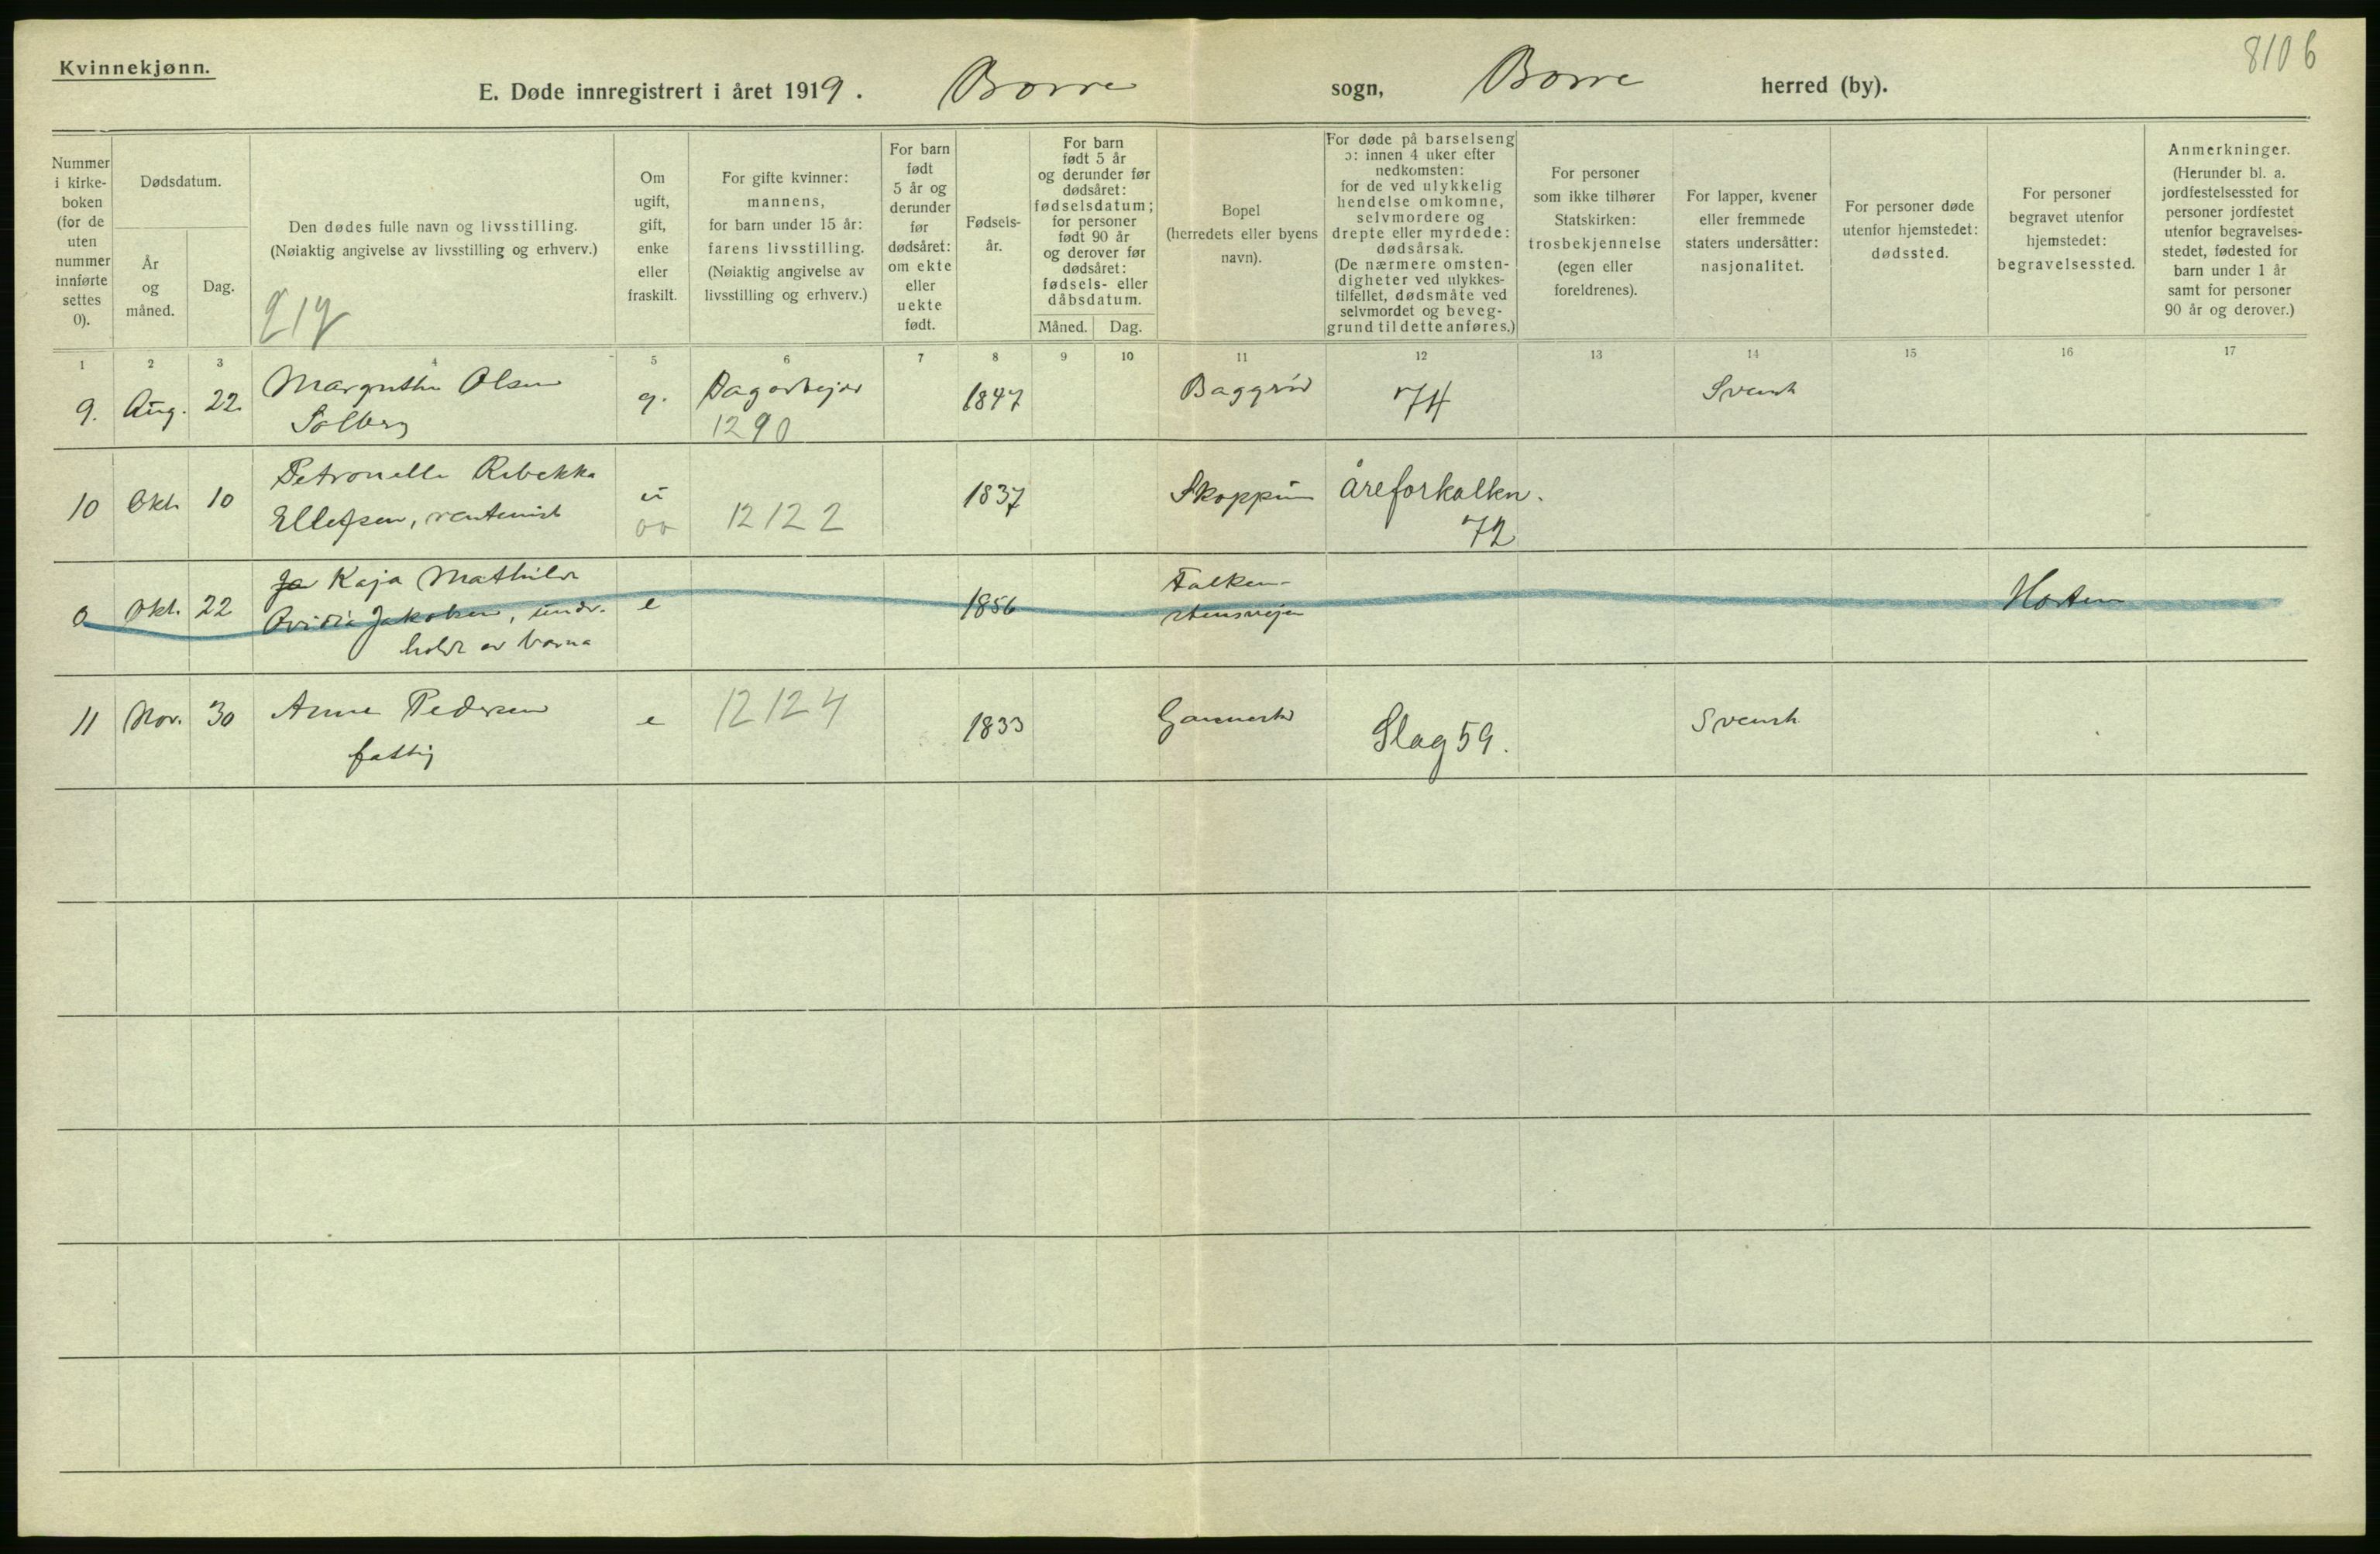 Kvinnekjønn.
8106
E. Døde innregistrert i året 1919. Borre sogn, Borre herred (by).
Nummer i kirke- boken (for de uten nummer innførte settes 0).
Dødsdatum.
År og måned.
Dag.
Den dødes fulle navn og livsstilling.
(Nøiaktig angivelse av livsstilling og erhverv.)
Om ugift, gift, enke eller fraskilt.
For gifte kvinner: mannens, for barn under 15 år: farens livsstilling. (Nøiaktig angivelse av livsstilling og erhverv.)
For barn født 5 år og derunder før dødsåret: om ekte eller uekte født.
Fødsels- år.
For barn født 5 år og derunder før dødsåret: fødselsdatum; for personer født 90 år og derover før dødsåret: fødsels- eller dåbsdatum.
Måned. Dag.
Bopel (herredets eller byens navn).
For døde på barselseng ɔ: innen 4 uker efter nedkomsten: for de ved ulykkelig hendelse omkomne, selvmordere og drepte eller myrdede: dødsårsak. (De nærmere omsten- digheter ved ulykkes- tilfellet, dødsmåte ved selvmordet og beveg- grund til dette anføres.)
For personer som ikke tilhører Statskirken: trosbekjennelse (egen eller foreldrenes).
For lapper, kvener eller fremmede staters undersåtter: nasjonalitet.
For personer døde utenfor hjemstedet: dødssted.
For personer begravet utenfor hjemstedet: begravelsessted.
Anmerkninger. (Herunder bl. a. jordfestelsessted for personer jordfestet utenfor begravelses- stedet, fødested for barn under 1 år samt for personer 90 år og derover.)
1 2 3 4 5 6 7 8 9 10 11 12 13 14 15 16 17
9. Aug. 22. Margrethe Olsen g. Dagarbejder 1847 Baggrød 74 Svensk
Solberg 1290
10 Okt. 10 Petronelle Rebekka u 1837 Skoppum Åreforkalkn.
Ellefsen, rentenist 00 12122 72
0 Okt. 22 Ja Kaja Mathilde e 1856 Falken- Horten
Ovidia Jakobsen, under- stensvejen
holdt av barna
11 Nov. 30 Anne Pedersen e 12124 1833 Slag 59. Svensk
fattig